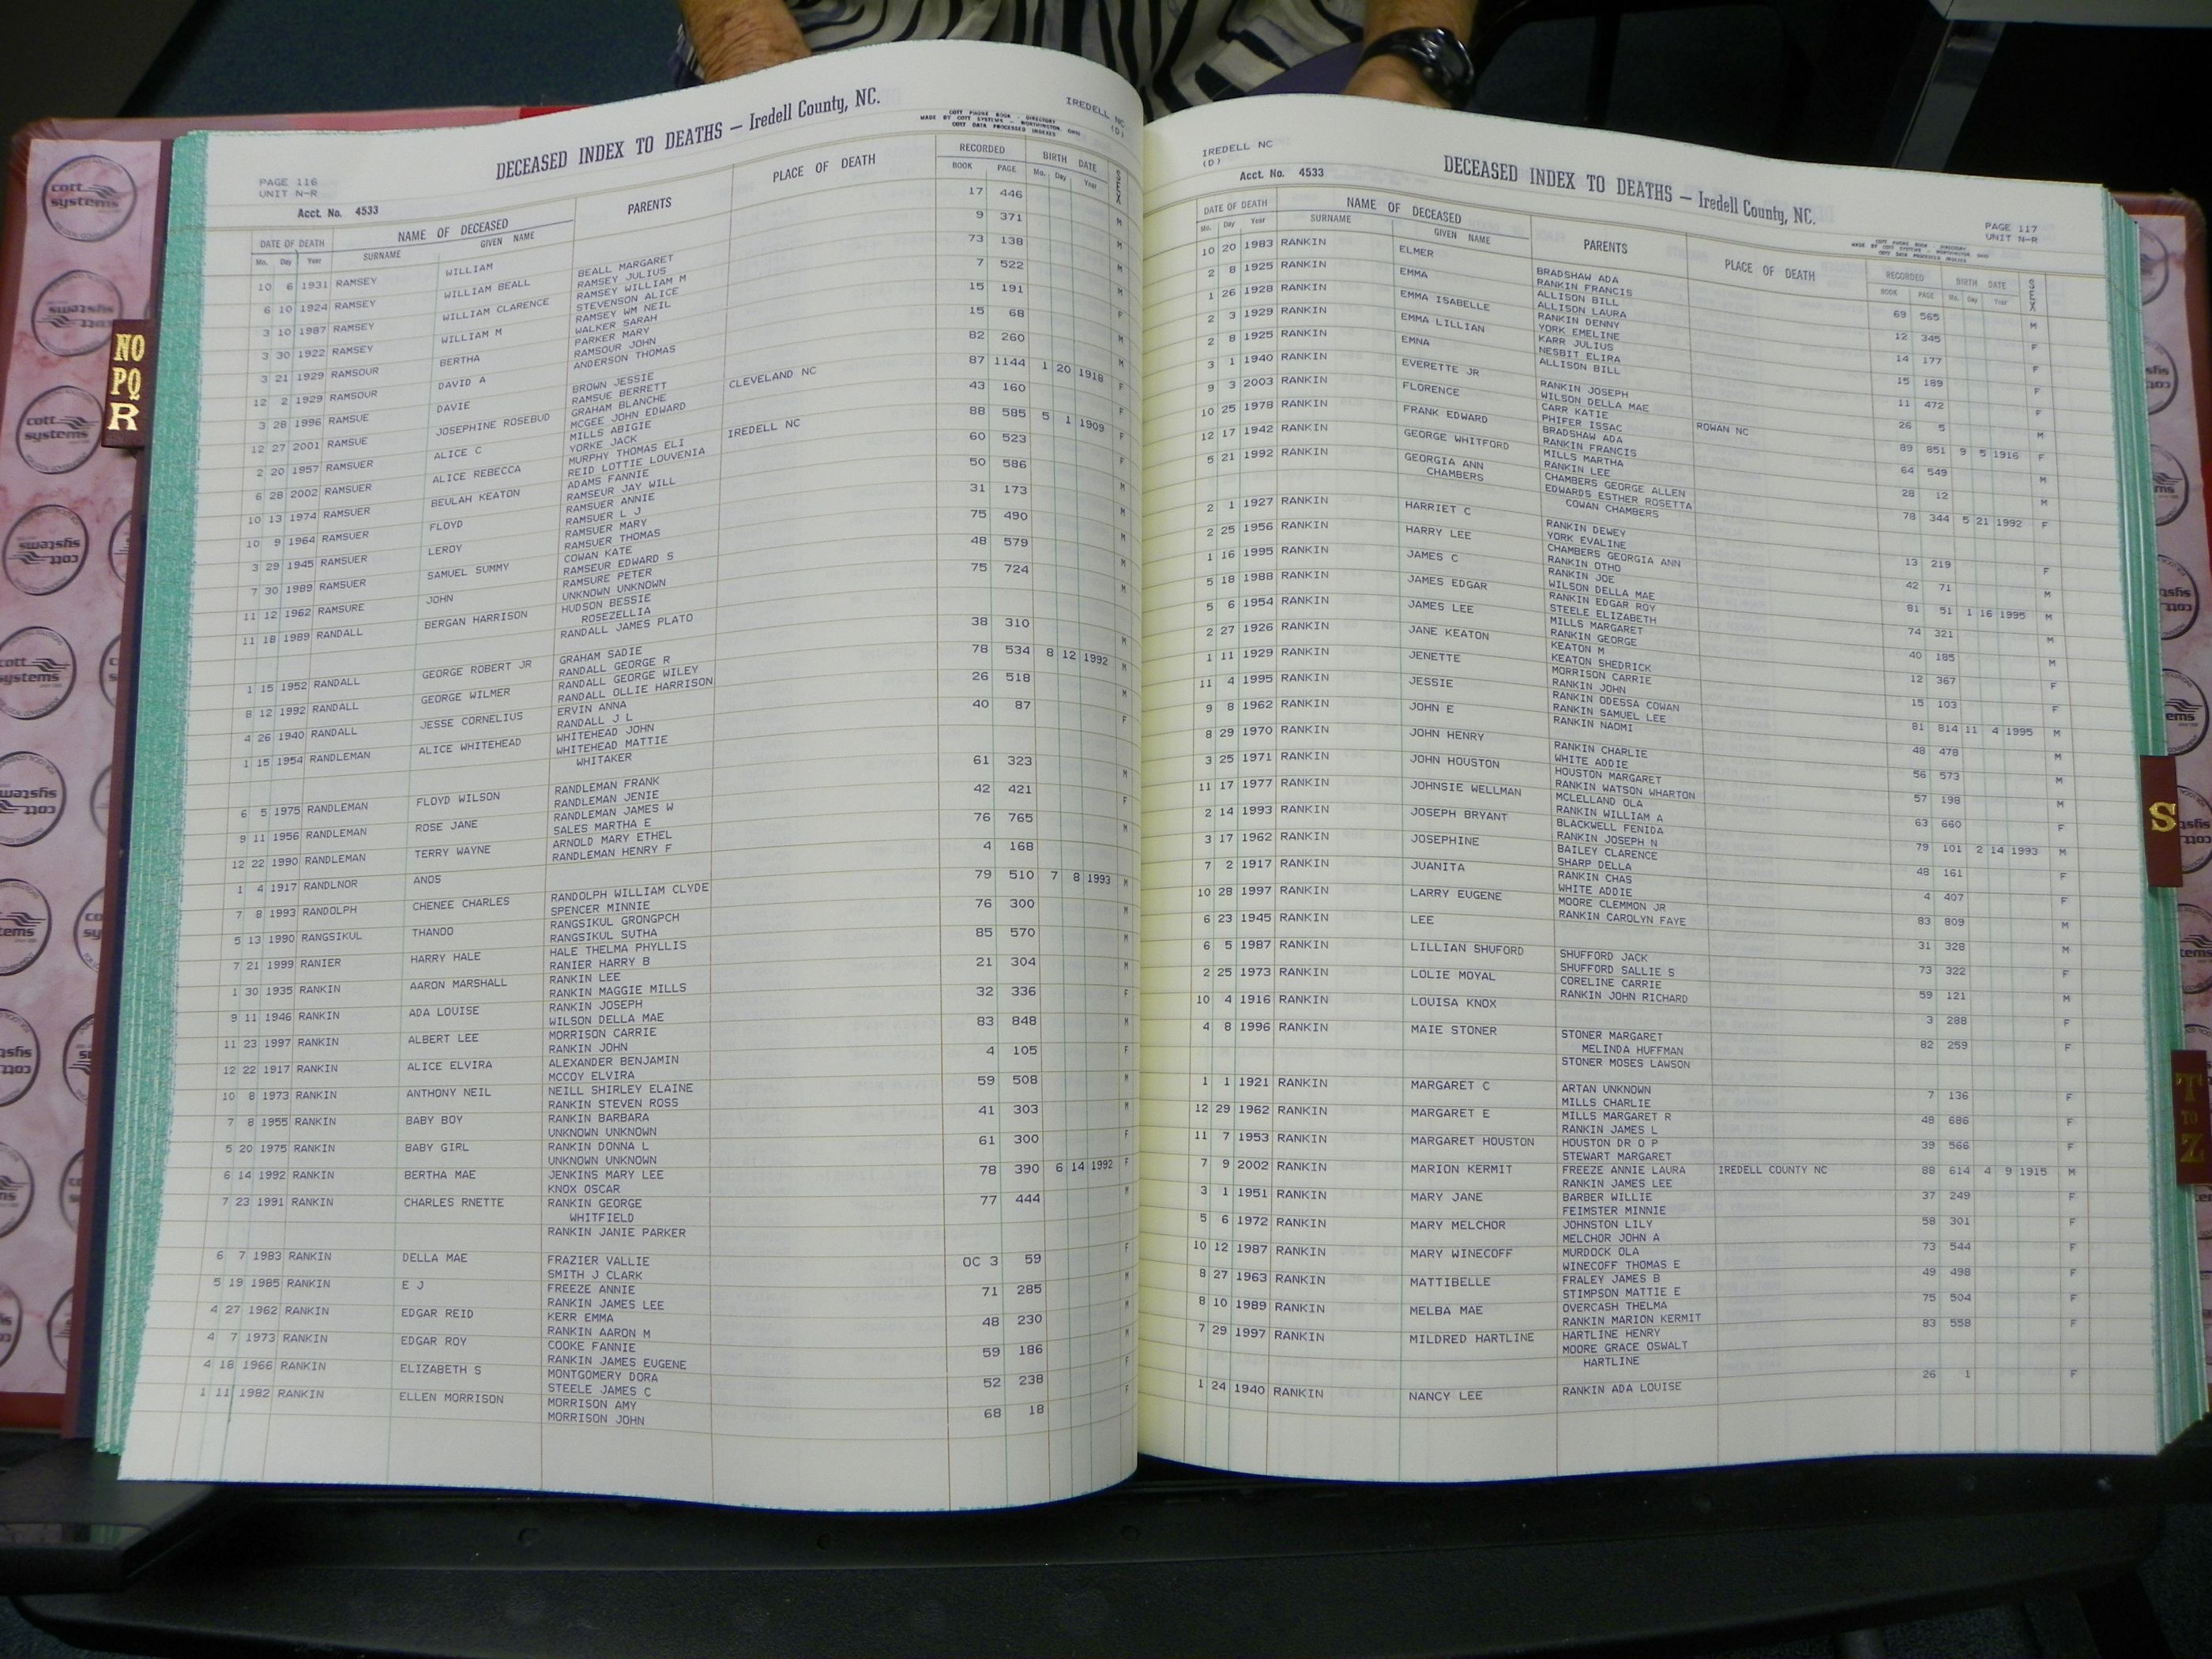 DECEASED INDEX TO DEATHS — Iredell County, NC.
IREDELL NC
(D)
COTT PHONE BOOK - DIRECTORY
MADE BY COTT SYSTEMS - WORTHINGTON, OHIO
COTT DATA PROCESSED INDEXES
PAGE 116
UNIT N-R
Acct. No. 4533
DATE OF DEATH NAME OF DECEASED PARENTS PLACE OF DEATH RECORDED BIRTH DATE SEX
Mo. Day Year SURNAME GIVEN NAME BOOK PAGE Mo. Day Year
10 6 1931 RAMSEY WILLIAM 17 446 M
6 10 1924 RAMSEY WILLIAM BEALL BEALL MARGARET 9 371 M
RAMSEY JULIUS
3 10 1987 RAMSEY WILLIAM CLARENCE RAMSEY WILLIAM M 73 138 M
STEVENSON ALICE
3 30 1922 RAMSEY WILLIAM M RAMSEY WM NEIL 7 522 M
WALKER SARAH
3 21 1929 RAMSOUR BERTHA PARKER MARY 15 191 F
RAMSOUR JOHN
12 2 1929 RAMSOUR DAVID A ANDERSON THOMAS 15 68 M
3 28 1996 RAMSUE DAVIE BROWN JESSIE 82 260 M
RAMSUE BERRETT
12 27 2001 RAMSUE JOSEPHINE ROSEBUD GRAHAM BLANCHE CLEVELAND NC 87 1144 1 20 1918 F
MCGEE JOHN EDWARD
2 20 1957 RAMSUER ALICE C MILLS ABIGIE 43 160 F
YORKE JACK
6 28 2002 RAMSUER ALICE REBECCA MURPHY THOMAS ELI IREDELL NC 88 585 5 1 1909 F
REID LOTTIE LOUVENIA
10 13 1974 RAMSUER BEULAH KEATON ADAMS FANNIE 60 523 F
RAMSEUR JAY WILL
10 9 1964 RAMSUER FLOYD RAMSUER ANNIE 50 586 M
RAMSUER L J
3 29 1945 RAMSUER LEROY RAMSUER MARY 31 173 M
RAMSUER THOMAS
7 30 1989 RAMSUER SAMUEL SUMMY COWAN KATE 75 490 M
RAMSEUR EDWARD S
11 12 1962 RAMSURE JOHN RAMSURE PETER 48 579 M
UNKNOWN UNKNOWN
11 18 1989 RANDALL BERGAN HARRISON HUDSON BESSIE 75 724 M
ROSEZELLIA
RANDALL JAMES PLATO
1 15 1952 RANDALL GEORGE ROBERT JR GRAHAM SADIE 38 310 M
RANDALL GEORGE R
8 12 1992 RANDALL GEORGE WILMER RANDALL GEORGE WILEY 78 534 8 12 1992 M
RANDALL OLLIE HARRISON
4 26 1940 RANDALL JESSE CORNELIUS ERVIN ANNA 26 518 M
RANDALL J L
1 15 1954 RANDLEMAN ALICE WHITEHEAD WHITEHEAD JOHN 40 87 F
WHITEHEAD MATTIE
WHITAKER
6 5 1975 RANDLEMAN FLOYD WILSON RANDLEMAN FRANK 61 323 M
RANDLEMAN JENIE
9 11 1956 RANDLEMAN ROSE JANE RANDLEMAN JAMES W 42 421 F
SALES MARTHA E
12 22 1990 RANDLEMAN TERRY WAYNE ARNOLD MARY ETHEL 76 765 M
RANDLEMAN HENRY F
1 4 1917 RANDLNOR ANOS 4 168
7 8 1993 RANDOLPH CHENEE CHARLES RANDOLPH WILLIAM CLYDE 79 510 7 8 1993 M
SPENCER MINNIE
5 13 1990 RANGSIKUL THANOO RANGSIKUL GRONGPCH 76 300 M
RANGSIKUL SUTHA
7 21 1999 RANIER HARRY HALE HALE THELMA PHYLLIS 85 570 M
RANIER HARRY B
1 30 1935 RANKIN AARON MARSHALL RANKIN LEE 21 304 M
RANKIN MAGGIE MILLS
9 11 1946 RANKIN ADA LOUISE RANKIN JOSEPH 32 336 F
WILSON DELLA MAE
11 23 1997 RANKIN ALBERT LEE MORRISON CARRIE 83 848 M
RANKIN JOHN
12 22 1917 RANKIN ALICE ELVIRA ALEXANDER BENJAMIN 4 105 F
MCCOY ELVIRA
10 8 1973 RANKIN ANTHONY NEIL NEILL SHIRLEY ELAINE 59 508 M
RANKIN STEVEN ROSS
7 8 1955 RANKIN BABY BOY RANKIN BARBARA 41 303 M
UNKNOWN UNKNOWN
5 20 1975 RANKIN BABY GIRL RANKIN DONNA L 61 300 F
UNKNOWN UNKNOWN
6 14 1992 RANKIN BERTHA MAE JENKINS MARY LEE 78 390 6 14 1992 F
KNOX OSCAR
7 23 1991 RANKIN CHARLES RNETTE RANKIN GEORGE 77 444 M
WHITFIELD
RANKIN JANIE PARKER
6 7 1983 RANKIN DELLA MAE FRAZIER VALLIE OC 3 59 F
SMITH J CLARK
5 19 1985 RANKIN E J FREEZE ANNIE 71 285 M
RANKIN JAMES LEE
4 27 1962 RANKIN EDGAR REID KERR EMMA 48 230 M
RANKIN AARON M
4 7 1973 RANKIN EDGAR ROY COOKE FANNIE 59 186 M
RANKIN JAMES EUGENE
4 18 1966 RANKIN ELIZABETH S MONTGOMERY DORA 52 238 F
STEELE JAMES C
1 11 1982 RANKIN ELLEN MORRISON MORRISON AMY 68 18 F
MORRISON JOHN
IREDELL NC
(D)
Acct. No. 4533
DECEASED INDEX TO DEATHS — Iredell County, NC.
PAGE 117
UNIT N-R
COTT PHONE BOOK - DIRECTORY
MADE BY COTT SYSTEMS - WORTHINGTON, OHIO
COTT DATA PROCESSED INDEXES
DATE OF DEATH NAME OF DECEASED PARENTS PLACE OF DEATH RECORDED BIRTH DATE SEX
Mo. Day Year SURNAME GIVEN NAME BOOK PAGE Mo. Day Year
10 20 1983 RANKIN ELMER BRADSHAW ADA 69 565 M
RANKIN FRANCIS
2 8 1925 RANKIN EMMA ALLISON BILL 12 345 F
ALLISON LAURA
1 26 1928 RANKIN EMMA ISABELLE RANKIN DENNY 14 177 F
YORK EMELINE
2 3 1929 RANKIN EMMA LILLIAN KARR JULIUS 15 189 F
NESBIT ELIRA
2 8 1925 RANKIN EMNA ALLISON BILL 11 472 F
3 1 1940 RANKIN EVERETTE JR RANKIN JOSEPH 26 5 M
WILSON DELLA MAE
9 3 2003 RANKIN FLORENCE CARR KATIE ROWAN NC 89 851 9 5 1916 F
PHIFER ISSAC
10 25 1978 RANKIN FRANK EDWARD BRADSHAW ADA 64 549 M
RANKIN FRANCIS
12 17 1942 RANKIN GEORGE WHITFORD MILLS MARTHA 28 12 M
RANKIN LEE
5 21 1992 RANKIN GEORGIA ANN CHAMBERS GEORGE ALLEN 78 344 5 21 1992 F
CHAMBERS EDWARDS ESTHER ROSETTA
COWAN CHAMBERS
2 1 1927 RANKIN HARRIET C RANKIN DEWEY 13 219 F
YORK EVALINE
2 25 1956 RANKIN HARRY LEE CHAMBERS GEORGIA ANN 42 71 M
RANKIN OTHO
1 16 1995 RANKIN JAMES C RANKIN JOE 81 51 1 16 1995 M
WILSON DELLA MAE
5 18 1988 RANKIN JAMES EDGAR RANKIN EDGAR ROY 74 321 M
STEELE ELIZABETH
5 6 1954 RANKIN JAMES LEE MILLS MARGARET 40 185 M
RANKIN GEORGE
2 27 1926 RANKIN JANE KEATON KEATON M 12 367 F
KEATON SHEDRICK
1 11 1929 RANKIN JENETTE MORRISON CARRIE 15 103 F
RANKIN JOHN
11 4 1995 RANKIN JESSIE RANKIN ODESSA COWAN 81 814 11 4 1995 M
RANKIN SAMUEL LEE
9 8 1962 RANKIN JOHN E RANKIN NAOMI 48 478 M
8 29 1970 RANKIN JOHN HENRY RANKIN CHARLIE 56 573 M
WHITE ADDIE
3 25 1971 RANKIN JOHN HOUSTON HOUSTON MARGARET 57 198 M
RANKIN WATSON WHARTON
11 17 1977 RANKIN JOHNSIE WELLMAN MCLELLAND OLA 63 660 F
RANKIN WILLIAM A
2 14 1993 RANKIN JOSEPH BRYANT BLACKWELL FENIDA 79 101 2 14 1993 M
RANKIN JOSEPH N
3 17 1962 RANKIN JOSEPHINE BAILEY CLARENCE 48 161 F
SHARP DELLA
7 2 1917 RANKIN JUANITA RANKIN CHAS 4 407 F
WHITE ADDIE
10 28 1997 RANKIN LARRY EUGENE MOORE CLEMMON JR 83 809 M
RANKIN CAROLYN FAYE
6 23 1945 RANKIN LEE 31 328 M
6 5 1987 RANKIN LILLIAN SHUFORD SHUFFORD JACK 73 322 F
SHUFFORD SALLIE S
2 25 1973 RANKIN LOLIE MOYAL CORELINE CARRIE 59 121 M
RANKIN JOHN RICHARD
10 4 1916 RANKIN LOUISA KNOX 3 288 F
4 8 1996 RANKIN MAIE STONER STONER MARGARET 82 259 F
MELINDA HUFFMAN
STONER MOSES LAWSON
1 1 1921 RANKIN MARGARET C ARTAN UNKNOWN 7 136 F
MILLS CHARLIE
12 29 1962 RANKIN MARGARET E MILLS MARGARET R 48 686 F
RANKIN JAMES L
11 7 1953 RANKIN MARGARET HOUSTON HOUSTON DR O P 39 566 F
STEWART MARGARET
7 9 2002 RANKIN MARION KERMIT FREEZE ANNIE LAURA IREDELL COUNTY NC 88 614 4 9 1915 M
RANKIN JAMES LEE
3 1 1951 RANKIN MARY JANE BARBER WILLIE 37 249 F
FEIMSTER MINNIE
5 6 1972 RANKIN MARY MELCHOR JOHNSTON LILY 58 301 F
MELCHOR JOHN A
10 12 1987 RANKIN MARY WINECOFF MURDOCK OLA 73 544 F
WINECOFF THOMAS E
8 27 1963 RANKIN MATTIBELLE FRALEY JAMES B 49 498 F
STIMPSON MATTIE E
8 10 1989 RANKIN MELBA MAE OVERCASH THELMA 75 504 F
RANKIN MARION KERMIT
7 29 1997 RANKIN MILDRED HARTLINE HARTLINE HENRY 83 558 F
MOORE GRACE OSWALT
HARTLINE
1 24 1940 RANKIN NANCY LEE RANKIN ADA LOUISE 26 1 F
NO
PQ
R
S
T
TO
Z
cott
systems